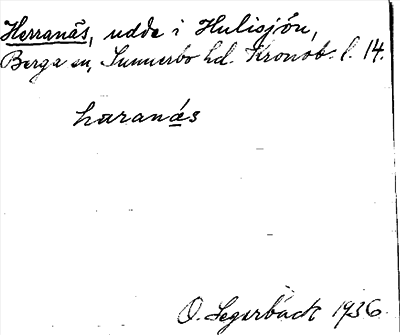 Herranäs, udde i Hulisjön,
Berga sn, Sunnerbo hd. Kronob. l. 14.
haranás
O. Segerbäck 1936.